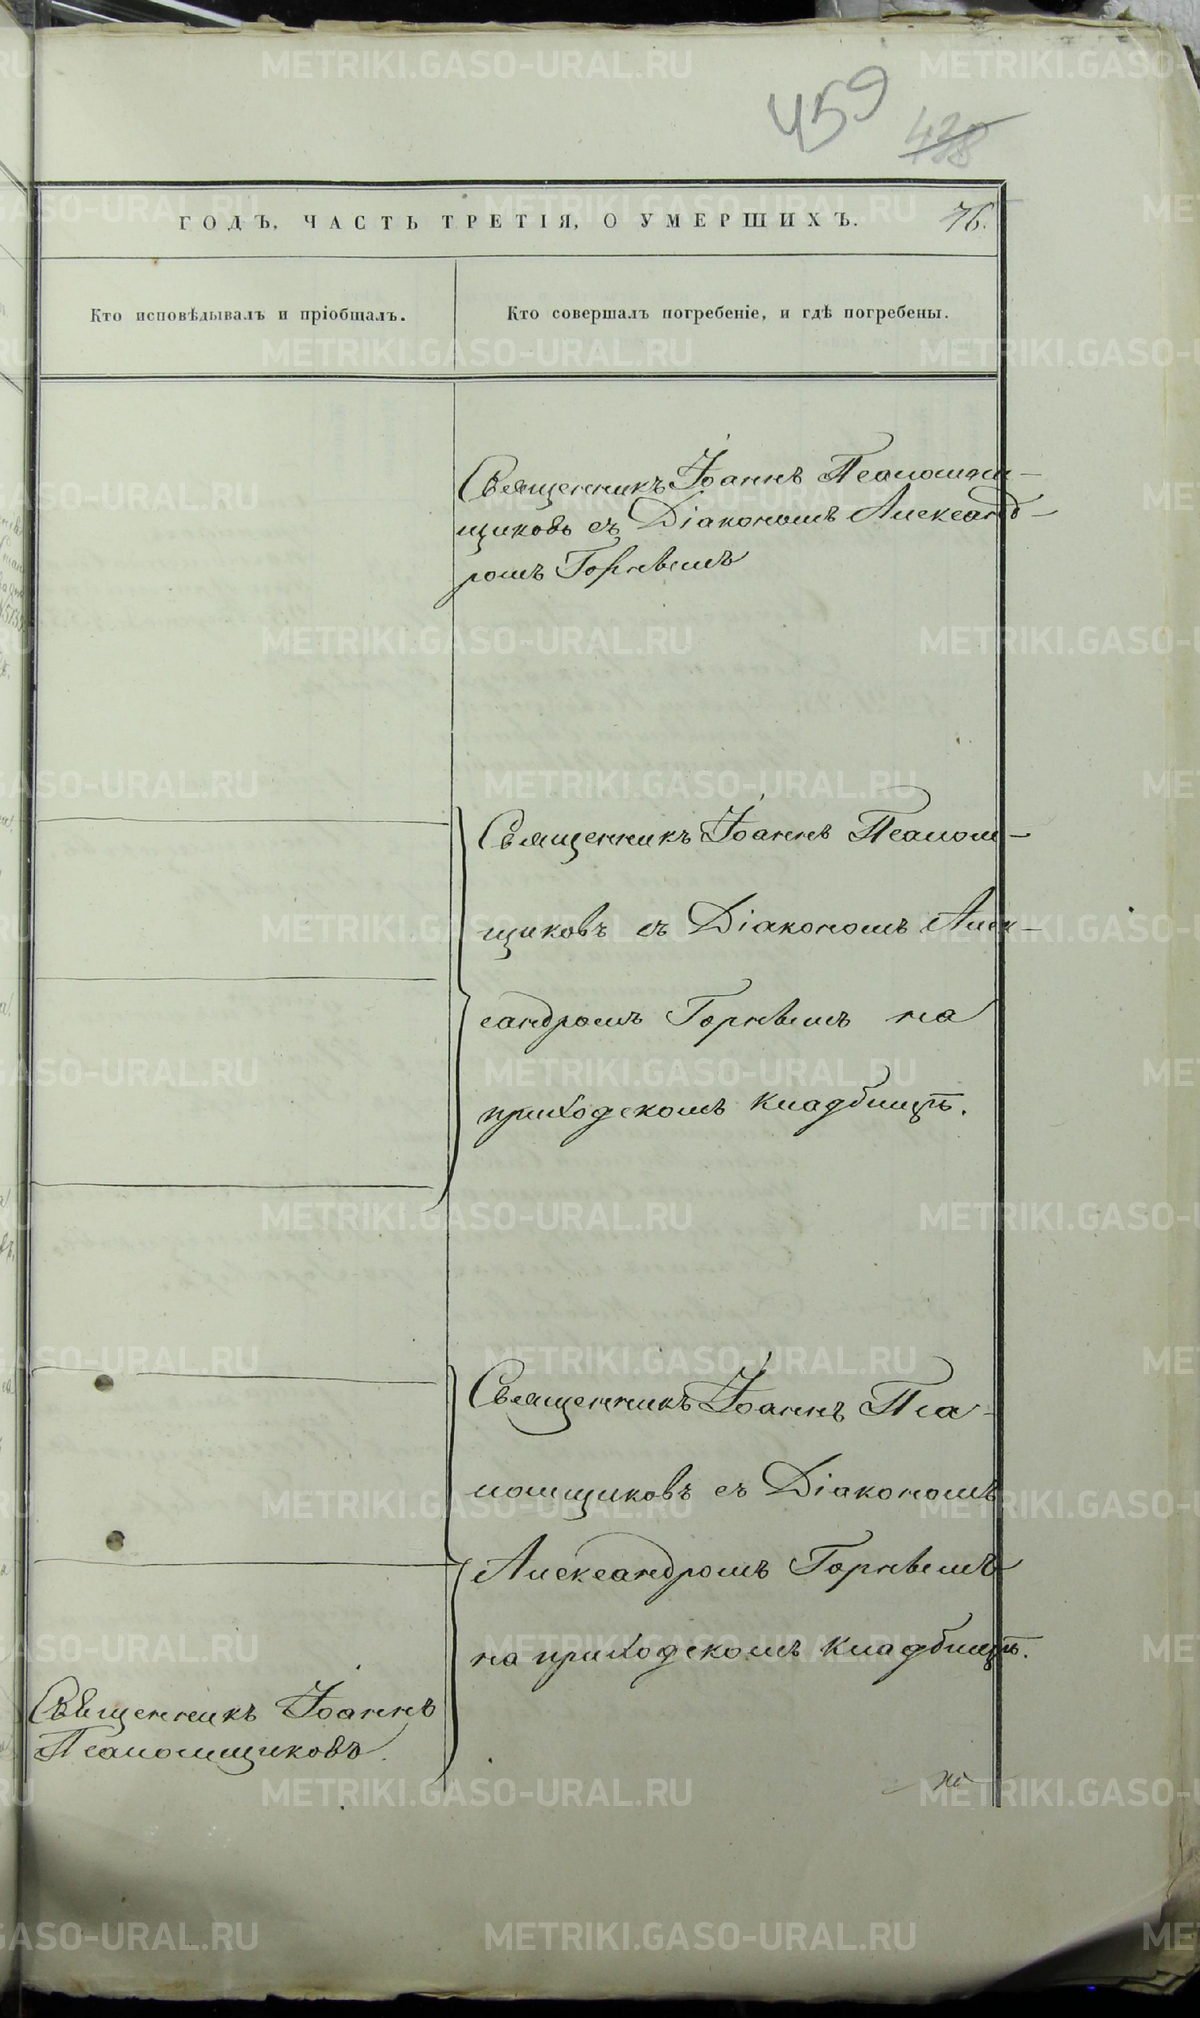 459
428
ГОДЪ, ЧАСТЬ ТРЕТІЯ, О УМЕРШИХЪ.
76.
Кто исповѣдывалъ и пріобщалъ.
Кто совершалъ погребеніе, и гдѣ погребены.
Священникъ Іоаннъ Псаломщи-
щиковъ съ Діакономъ Александ-
ромъ Горнымъ
Священникъ Іоаннъ Псалом-
щиковъ съ Діакономъ Алек-
сандромъ Горнымъ на
приходскомъ кладбищѣ.
Священникъ Іоаннъ Пса-
ломщиковъ съ Діакономъ
Александромъ Горнымъ
на приходскомъ кладбищѣ.
Священникъ Іоаннъ
Псаломщиковъ.
METRIKI.GASO-URAL.RU